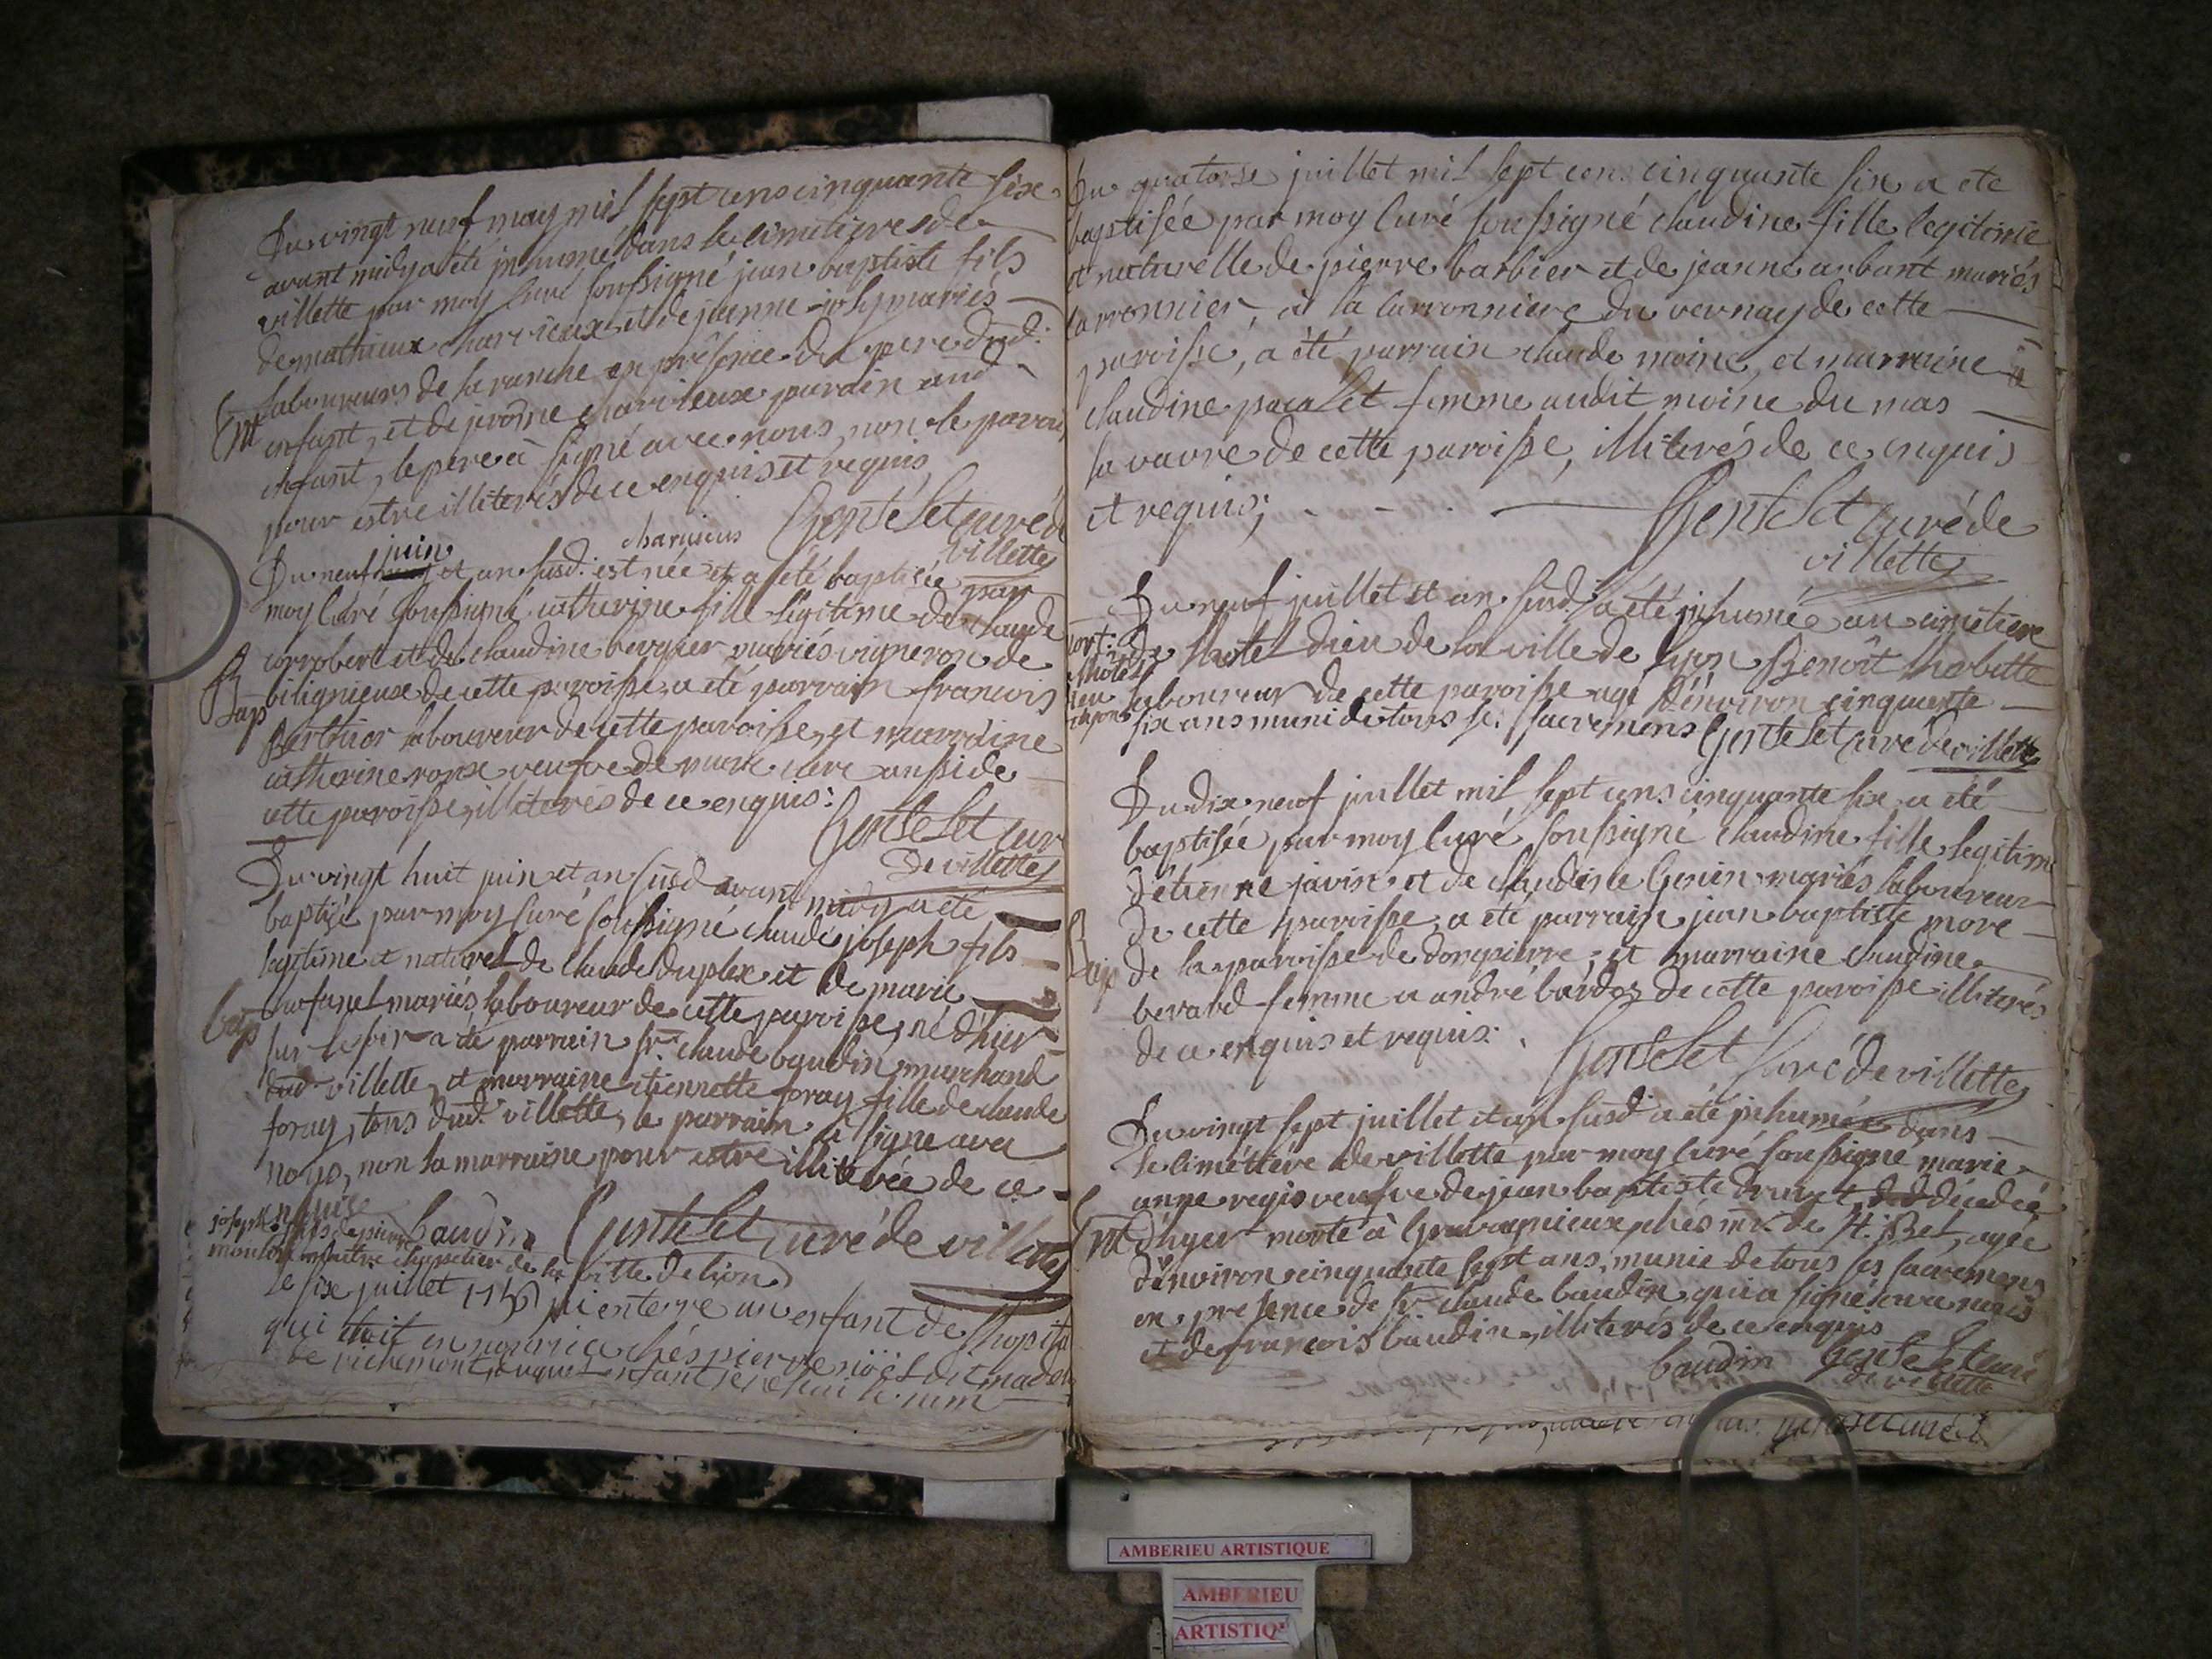 Du vingt neuf may mil sept cens cinquante six
avant midy a été inhumé dans le cimetiere de
villette par moy curé soussigné jean baptiste fils
de mathieux charrieux et de jeanne joly mariés
laboureurs de la ranche en présence du pere dud.
enfant, et de jerôme charrieux parain aud
enfant, le pere à signé avec nous, non le parain
pour estre illiterés de ce enquis et requis
charuieus Gentelet curé de
villette
Du neuf juin et an susd. est née et a été baptisée par
moy curé soussigné catherine fille légitime de claude
corrobert et de claudine bergier mariés vigneron de
Bap bilignieux de cette paroisse, a été parrain francois
Berthier laboureur de cette paroisse, et marraine
catherine roux veufve de marc aussi de
cette paroisse, illiterés de ce enquis:
Gentelet curé
De villette
Du vingt huit juin et an susd avant midy a été
baptisé par moy curé soussigné claude joseph fils
legitime et naturel de claude duplex et de marie
chafanel mariés, laboureur de cette paroisse, né d'hier
bap sur le soir a été parrain sr. claude baudin marchand
dud villette, et marraine etiennette foray fille de claude
foray, tous dud. villette, le parrain a signe avec
nous, non la marraine pour estre illiterée de ce
baudin Gentelet curé de villette
joseph fils de pierre
maitre chapelier de la ville de lion
Le six juillet 1756 j'ai enterre un enfant de l'hopital
qui etoit en nourrice chés pierre nöel dit madel
de richemont, duquel enfant
Du quatorse juillet mil sept cens cinquante six a eté
baptisée par moy curé soussigné claudine fille legitimé
et naturelle de pierre barbier et de jeanne arbant mariés
carronnier, à la carronniere du vernay de cette
paroisse, a été parrain claude moine, et marraine
claudine pacalet femme audit moine du mas
la vavre de cette paroisse, illiterés de ce enquis
et requis;
Gentelet curé de
villette
Du neuf juillet et an susd. a été inhumé au cimetiere
mort: de l'hotel dieu de la ville de lyon Benoît thobette
a l'hotel laboureur de cette paroisse agé d'environ cinquante
dieu six ans muni de tous se: sacremens Gentelet curé de villette
de lyon
Du dix neuf juillet mil sept cens cinquante six a été
baptisée par moy curé soussigné claudine fille legitime
d'etienne javin et de claudine Genin mariés laboureur
de cette paroisse, a été parrain jean baptiste more
Bap de la paroisse de dompierre, et marraine claudine
berard femme a andré bardoz de cette paroisse illiterés
de ce enquis et requis:
Gentelet Curé de villette
Du vingt sept juillet et an susd a été inhumée dans
le cimettiere de villette par moy curé soussigné marie
anne regis veufve de jean baptiste druet décedée
Ent d'hyer morte à Gravagnieux chés mr. de st. Bel, agée
d'environ cinquante sept ans, munie de tous ses sacremens
en presence de sr. claude baudin qui a signé avec nous
et de francois baudin, illiterés de ce enquis
baudin Gentelet curé
de villette
AMBERIEU ARTISTIQUE
AMBERIEU
ARTISTIQ